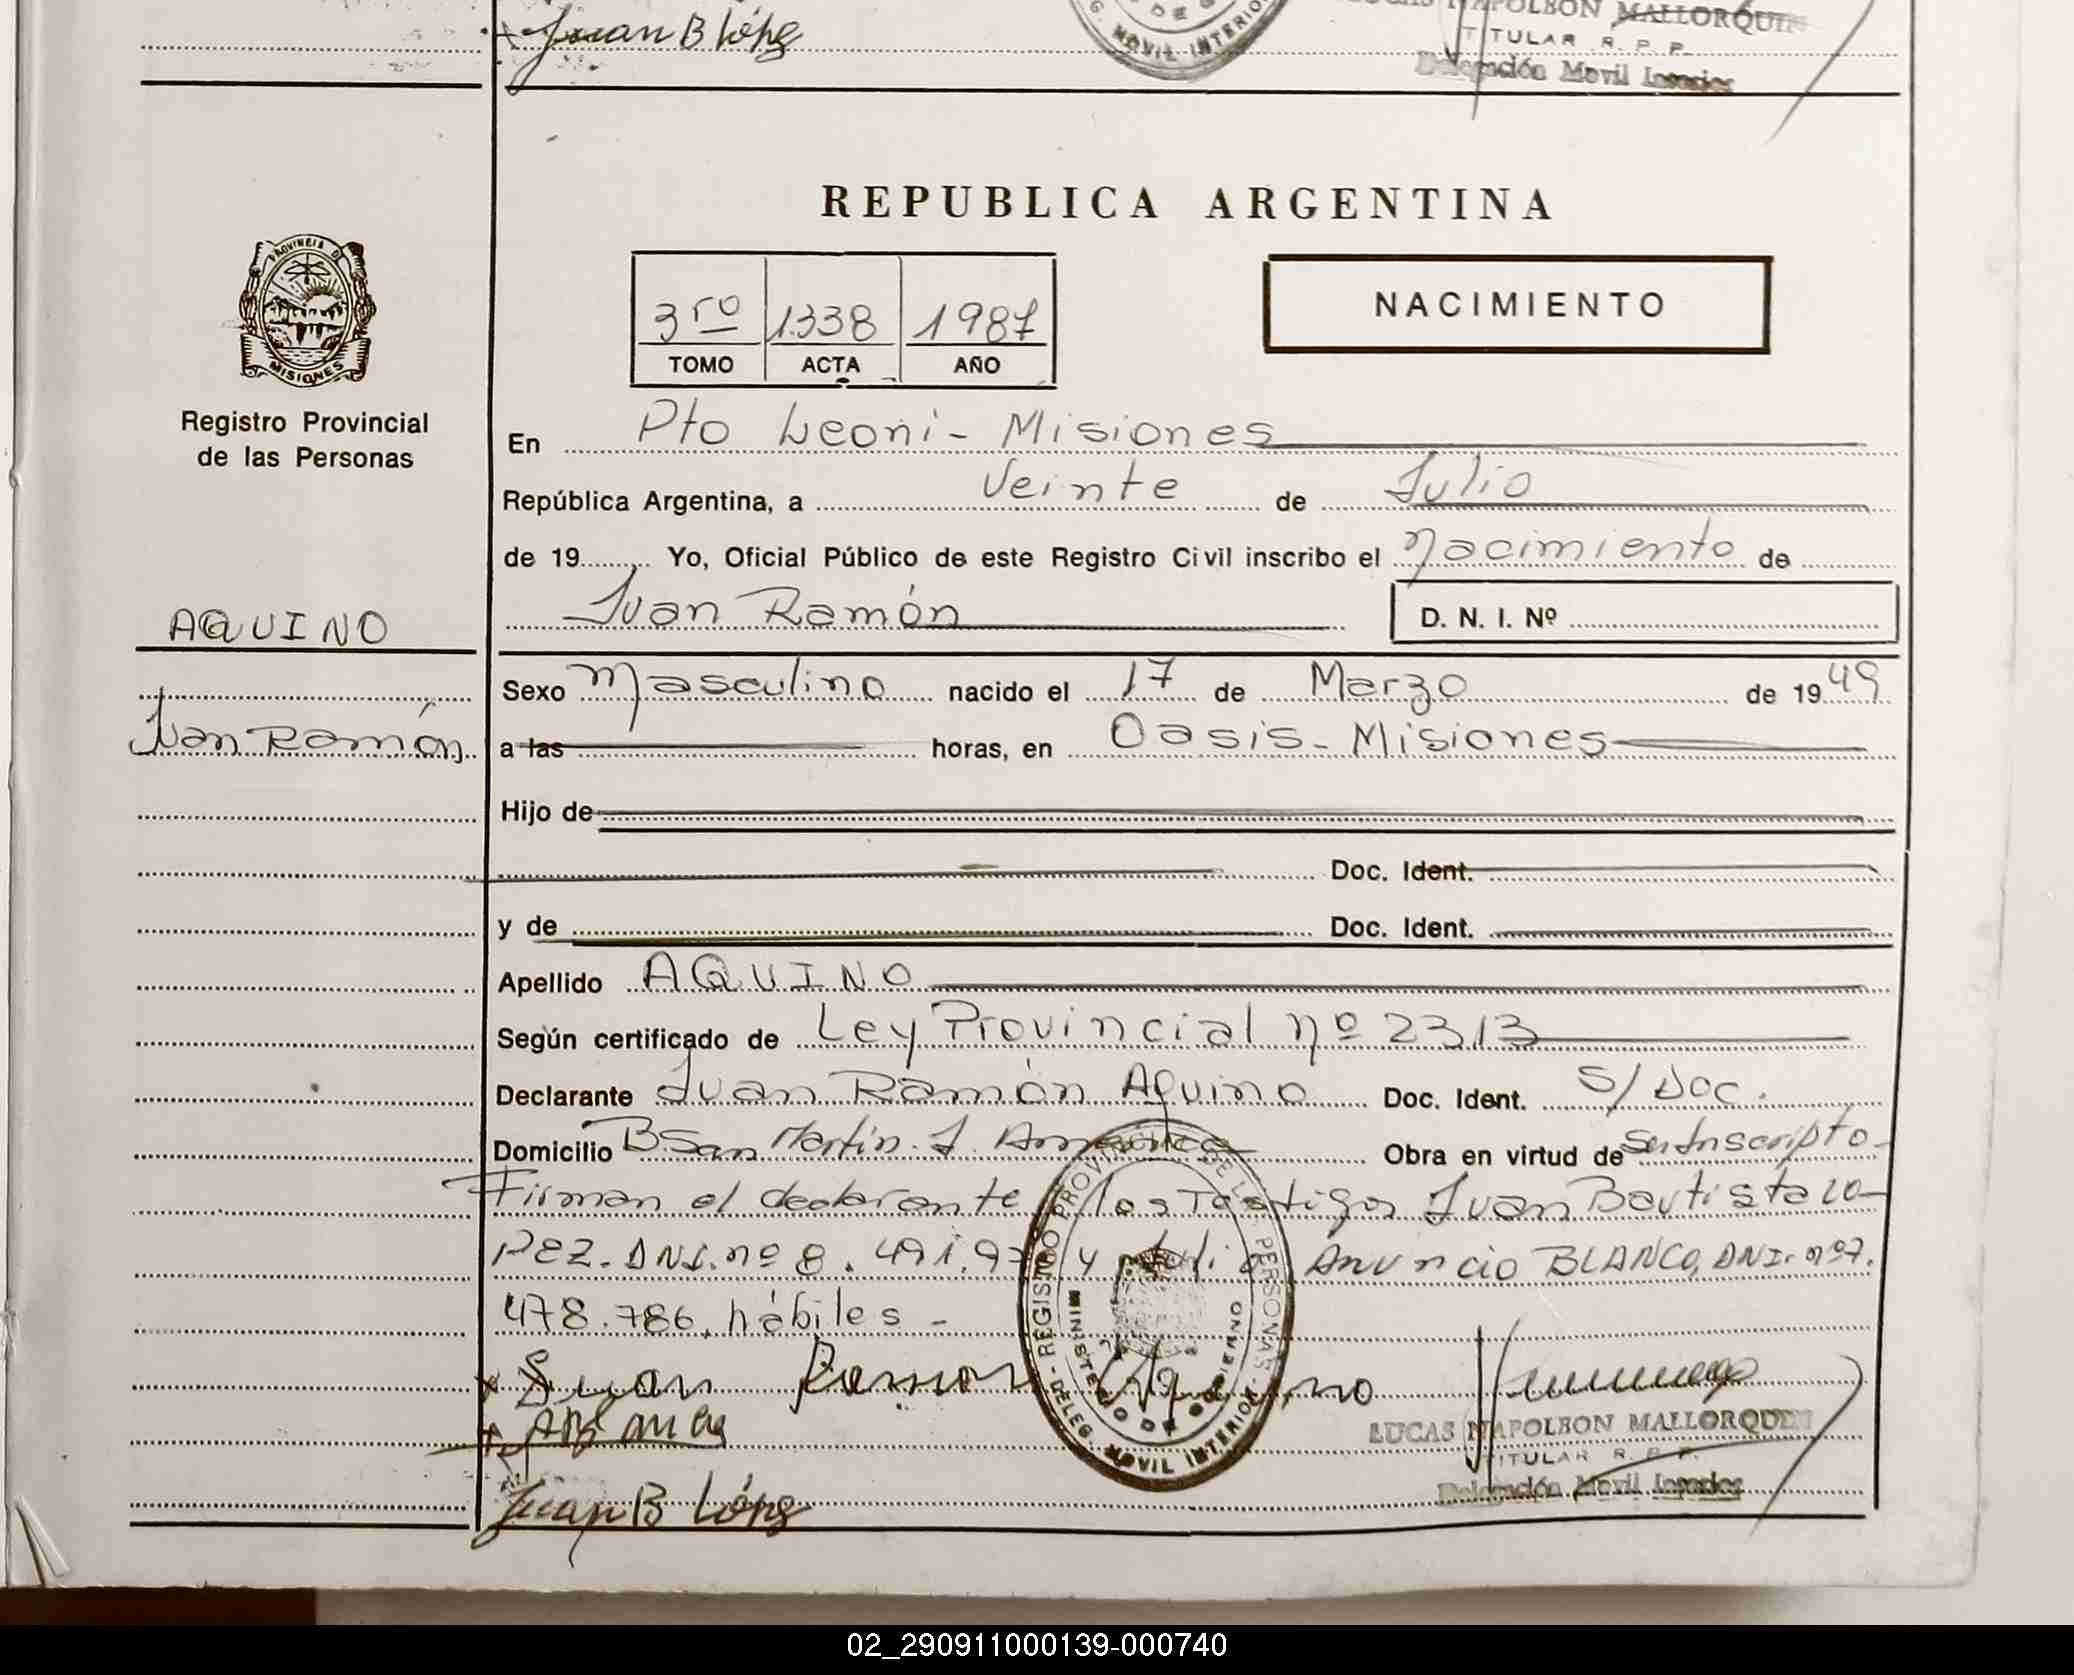 Juan B López
NAPOLEON MALLORQUIN
TITULAR R. P. P.
Delegación Movil Interior
G. MOVIL INTERIOR
REPUBLICA ARGENTINA
PROVINCIA DE
MISIONES
Registro Provincial
de las Personas
3ro 1338 1987
TOMO ACTA AÑO
NACIMIENTO
En Pto Leoni - Misiones
República Argentina, a Veinte de Julio
de 19 Yo, Oficial Público de este Registro Civil inscribo el Nacimiento de
Juan Ramón D. N. I. Nº
AQUINO
Juan Ramón
Sexo Masculino nacido el 17 de Marzo de 19 49
a las horas, en Oasis - Misiones
Hijo de
Doc. Ident.
y de Doc. Ident.
Apellido AQUINO
Según certificado de Ley Provincial nº 2313
Declarante Juan Ramón Aquino Doc. Ident. S/ Doc.
Domicilio B San Martín. J. América Obra en virtud de Ser Inscripto-
Firman el declarante los Testigos Juan Bautista LO-
PEZ. DNI. nº 8.491.97 y Anuncio BLANCO, DNI. nº 7.
478.786, hábiles -
Juan Ramon Aquino
Juan B López
REGISTRO PROVINCIAL DE LAS PERSONAS
MINISTERIO DE GOBIERNO
DELEG. MOVIL INTERIOR
LUCAS NAPOLEON MALLORQUIN
TITULAR R. P. P.
Delegación Movil Interior
02_290911000139-000740